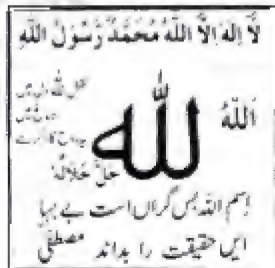 لَا إِلٰهَ إِلَّا اللهُ مُحَمَّدٌ رَّسُوْلُ اللهِ
اَللّٰهُ
لله
جَلَّ جَلَالُهٗ
اسم اللہ بس گراں است بے بہا
ایں حقیقت را بداند مصطفیٰ